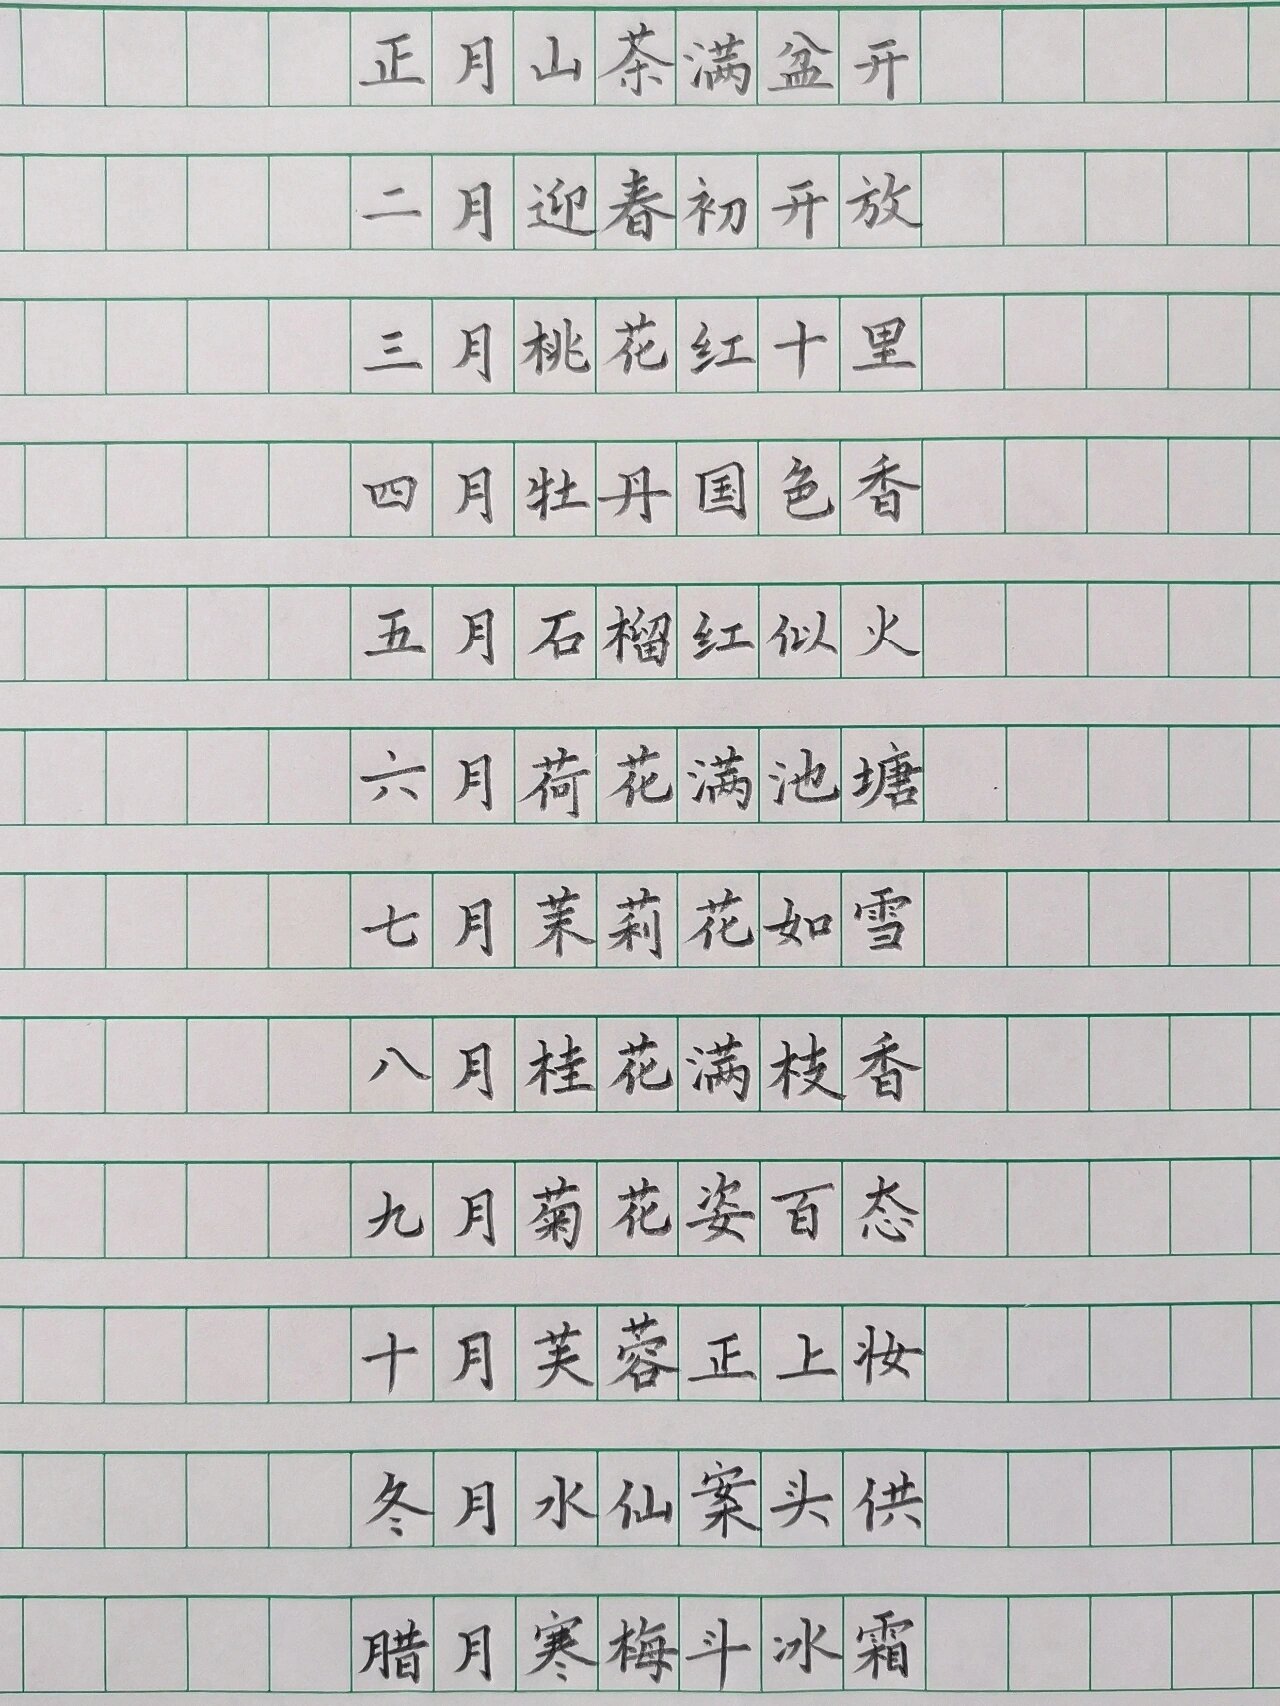 正月山茶满盆开
二月迎春初开放
三月桃花红十里
四月牡丹国色香
五月石榴红似火
六月荷花满池塘
七月茉莉花如雪
八月桂花满枝香
九月菊花姿百态
十月芙蓉正上妆
冬月水仙案头供
腊月寒梅斗冰霜